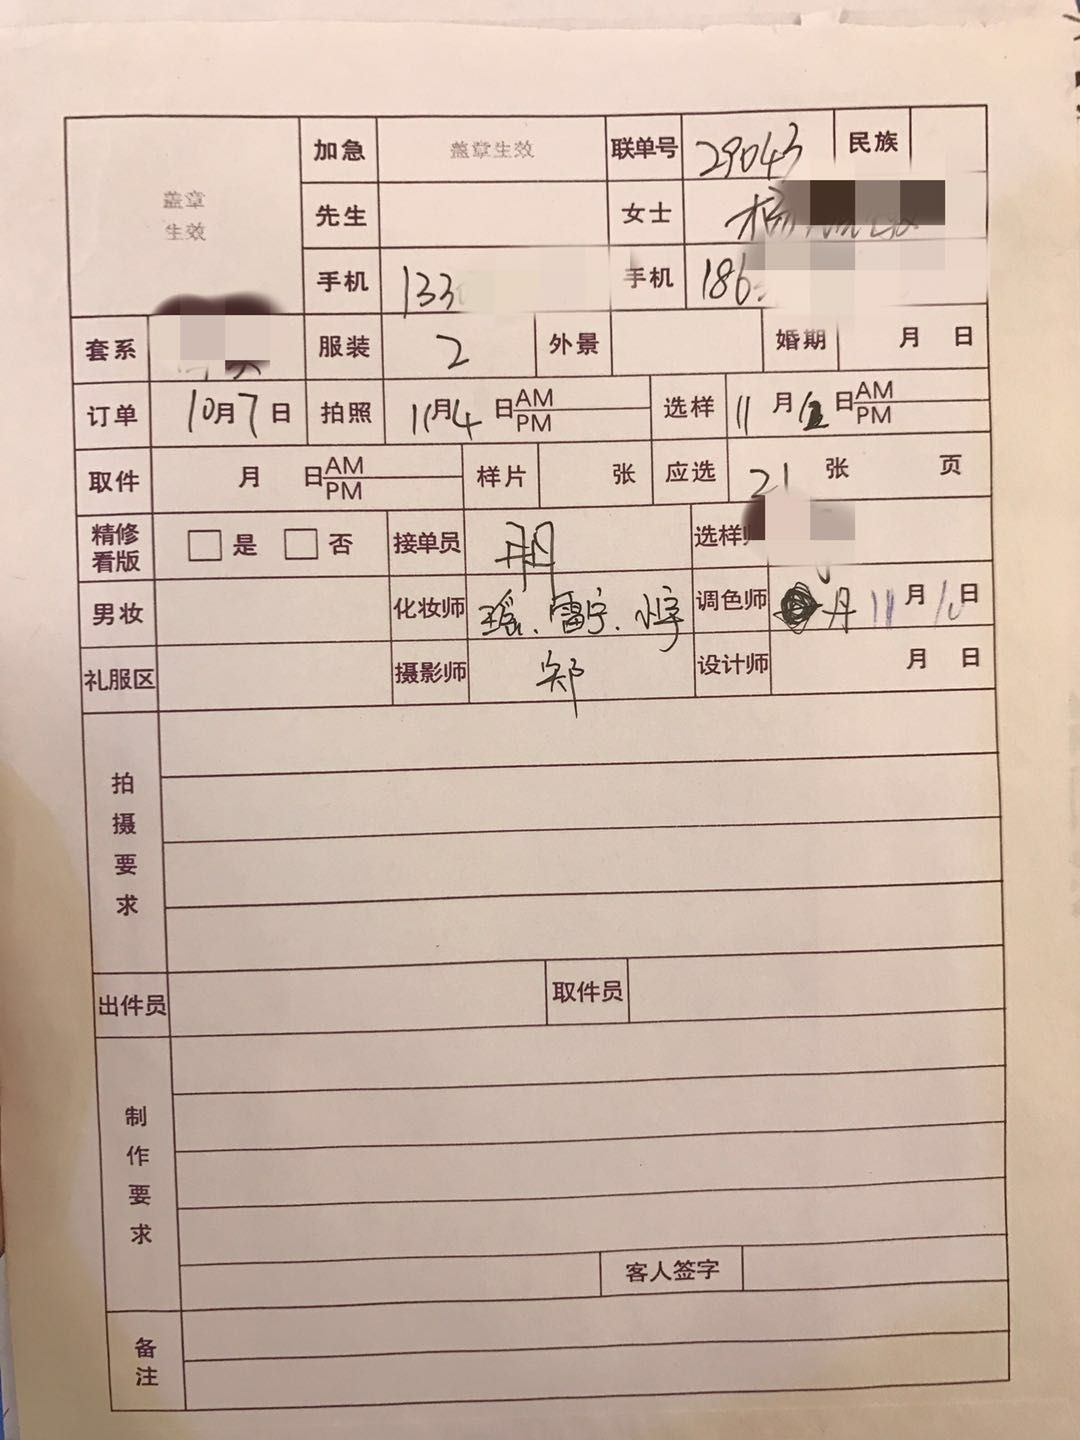 盖章 生效 加急 盖章生效 联单号 29043 民族
先生 女士 杨
手机 133 手机 186
套系 服装 2 外景 婚期 月 日
订单 10月7日 拍照 11月4日 AM PM 选样 11月 日 AM PM
取件 月 日 AM PM 样片 张 应选 21张 页
精修看版 □是 □否 接单员 选样
男妆 化妆师 瑶、雷宁、小宇 调色师 丹 11月10日
礼服区 摄影师 郑 设计师 月 日
拍摄要求
出件员 取件员
制作要求
客人签字
备注